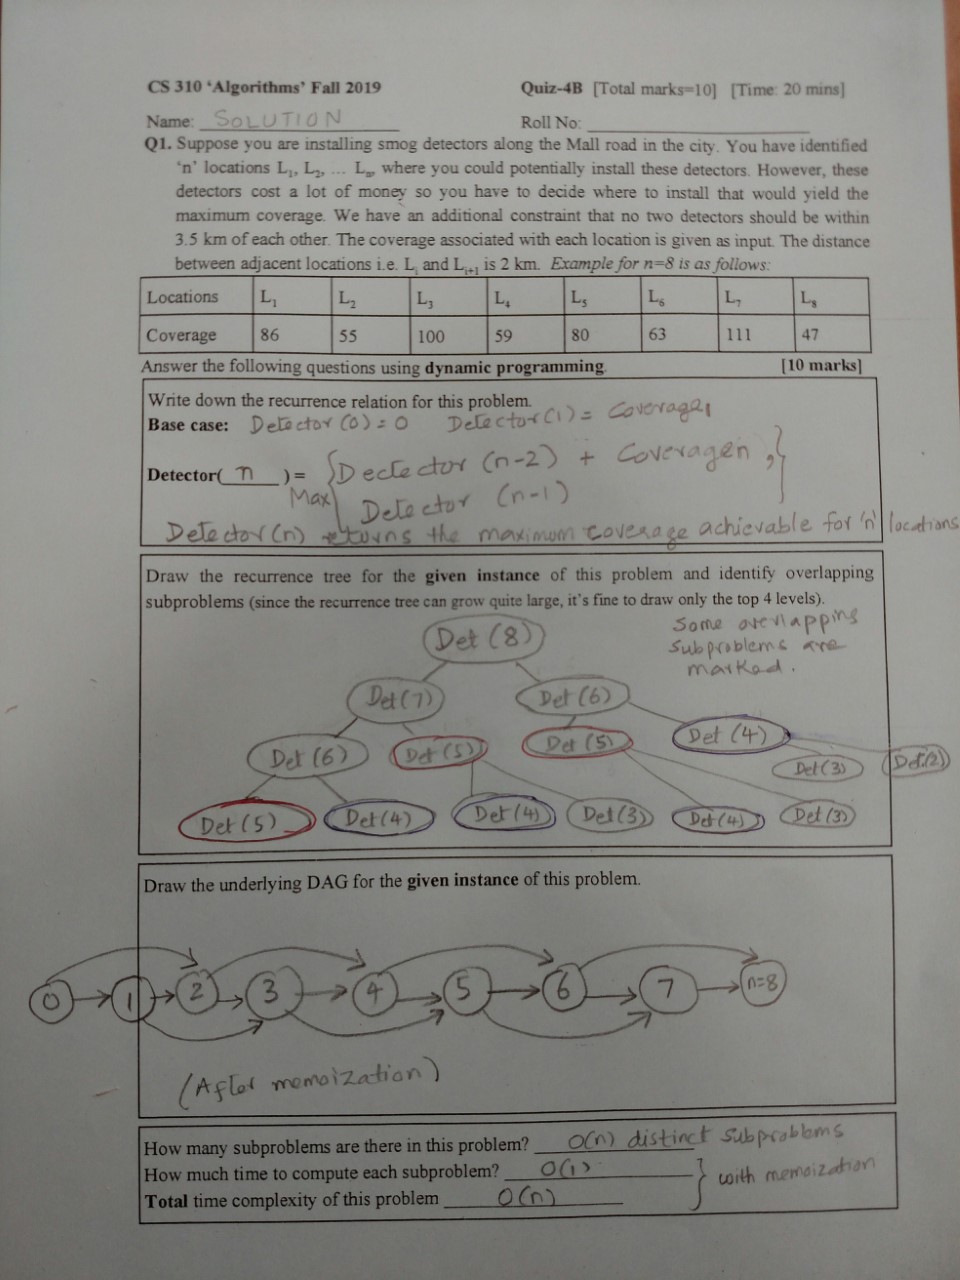 CS 310 ‘Algorithms’ Fall 2019 Quiz-4B [Total marks=10] [Time: 20 mins]
Name: SOLUTION Roll No:
Q1. Suppose you are installing smog detectors along the Mall road in the city. You have identified
‘n’ locations L₁, L₂, ... Lₙ, where you could potentially install these detectors. However, these
detectors cost a lot of money so you have to decide where to install that would yield the
maximum coverage. We have an additional constraint that no two detectors should be within
3.5 km of each other. The coverage associated with each location is given as input. The distance
between adjacent locations i.e. Lᵢ and Lᵢ₊₁ is 2 km. Example for n=8 is as follows:
Locations L₁ L₂ L₃ L₄ L₅ L₆ L₇ L₈
Coverage 86 55 100 59 80 63 111 47
Answer the following questions using dynamic programming. [10 marks]
Write down the recurrence relation for this problem.
Base case: Detector (0) = 0 Detector (1) = Coverage₁
Detector( n ) = Max { Dectector (n-2) + Coveragen ,
Detector (n-1) }
Detector (n) returns the maximum coverage achievable for 'n' locations
Draw the recurrence tree for the given instance of this problem and identify overlapping
subproblems (since the recurrence tree can grow quite large, it’s fine to draw only the top 4 levels).
Some overlapping
subproblems are
marked.
Det (8)
Det (7) Det (6)
Det (6) Det (5) Det (5) Det (4)
Det (3) Det (2)
Det (5) Det (4) Det (4) Det (3) Det (4) Det (3)
Draw the underlying DAG for the given instance of this problem.
0 1 2 3 4 5 6 7 n=8
(After memoization)
How many subproblems are there in this problem? O(n) distinct subproblems
How much time to compute each subproblem? O(1) } with memoization
Total time complexity of this problem O(n)